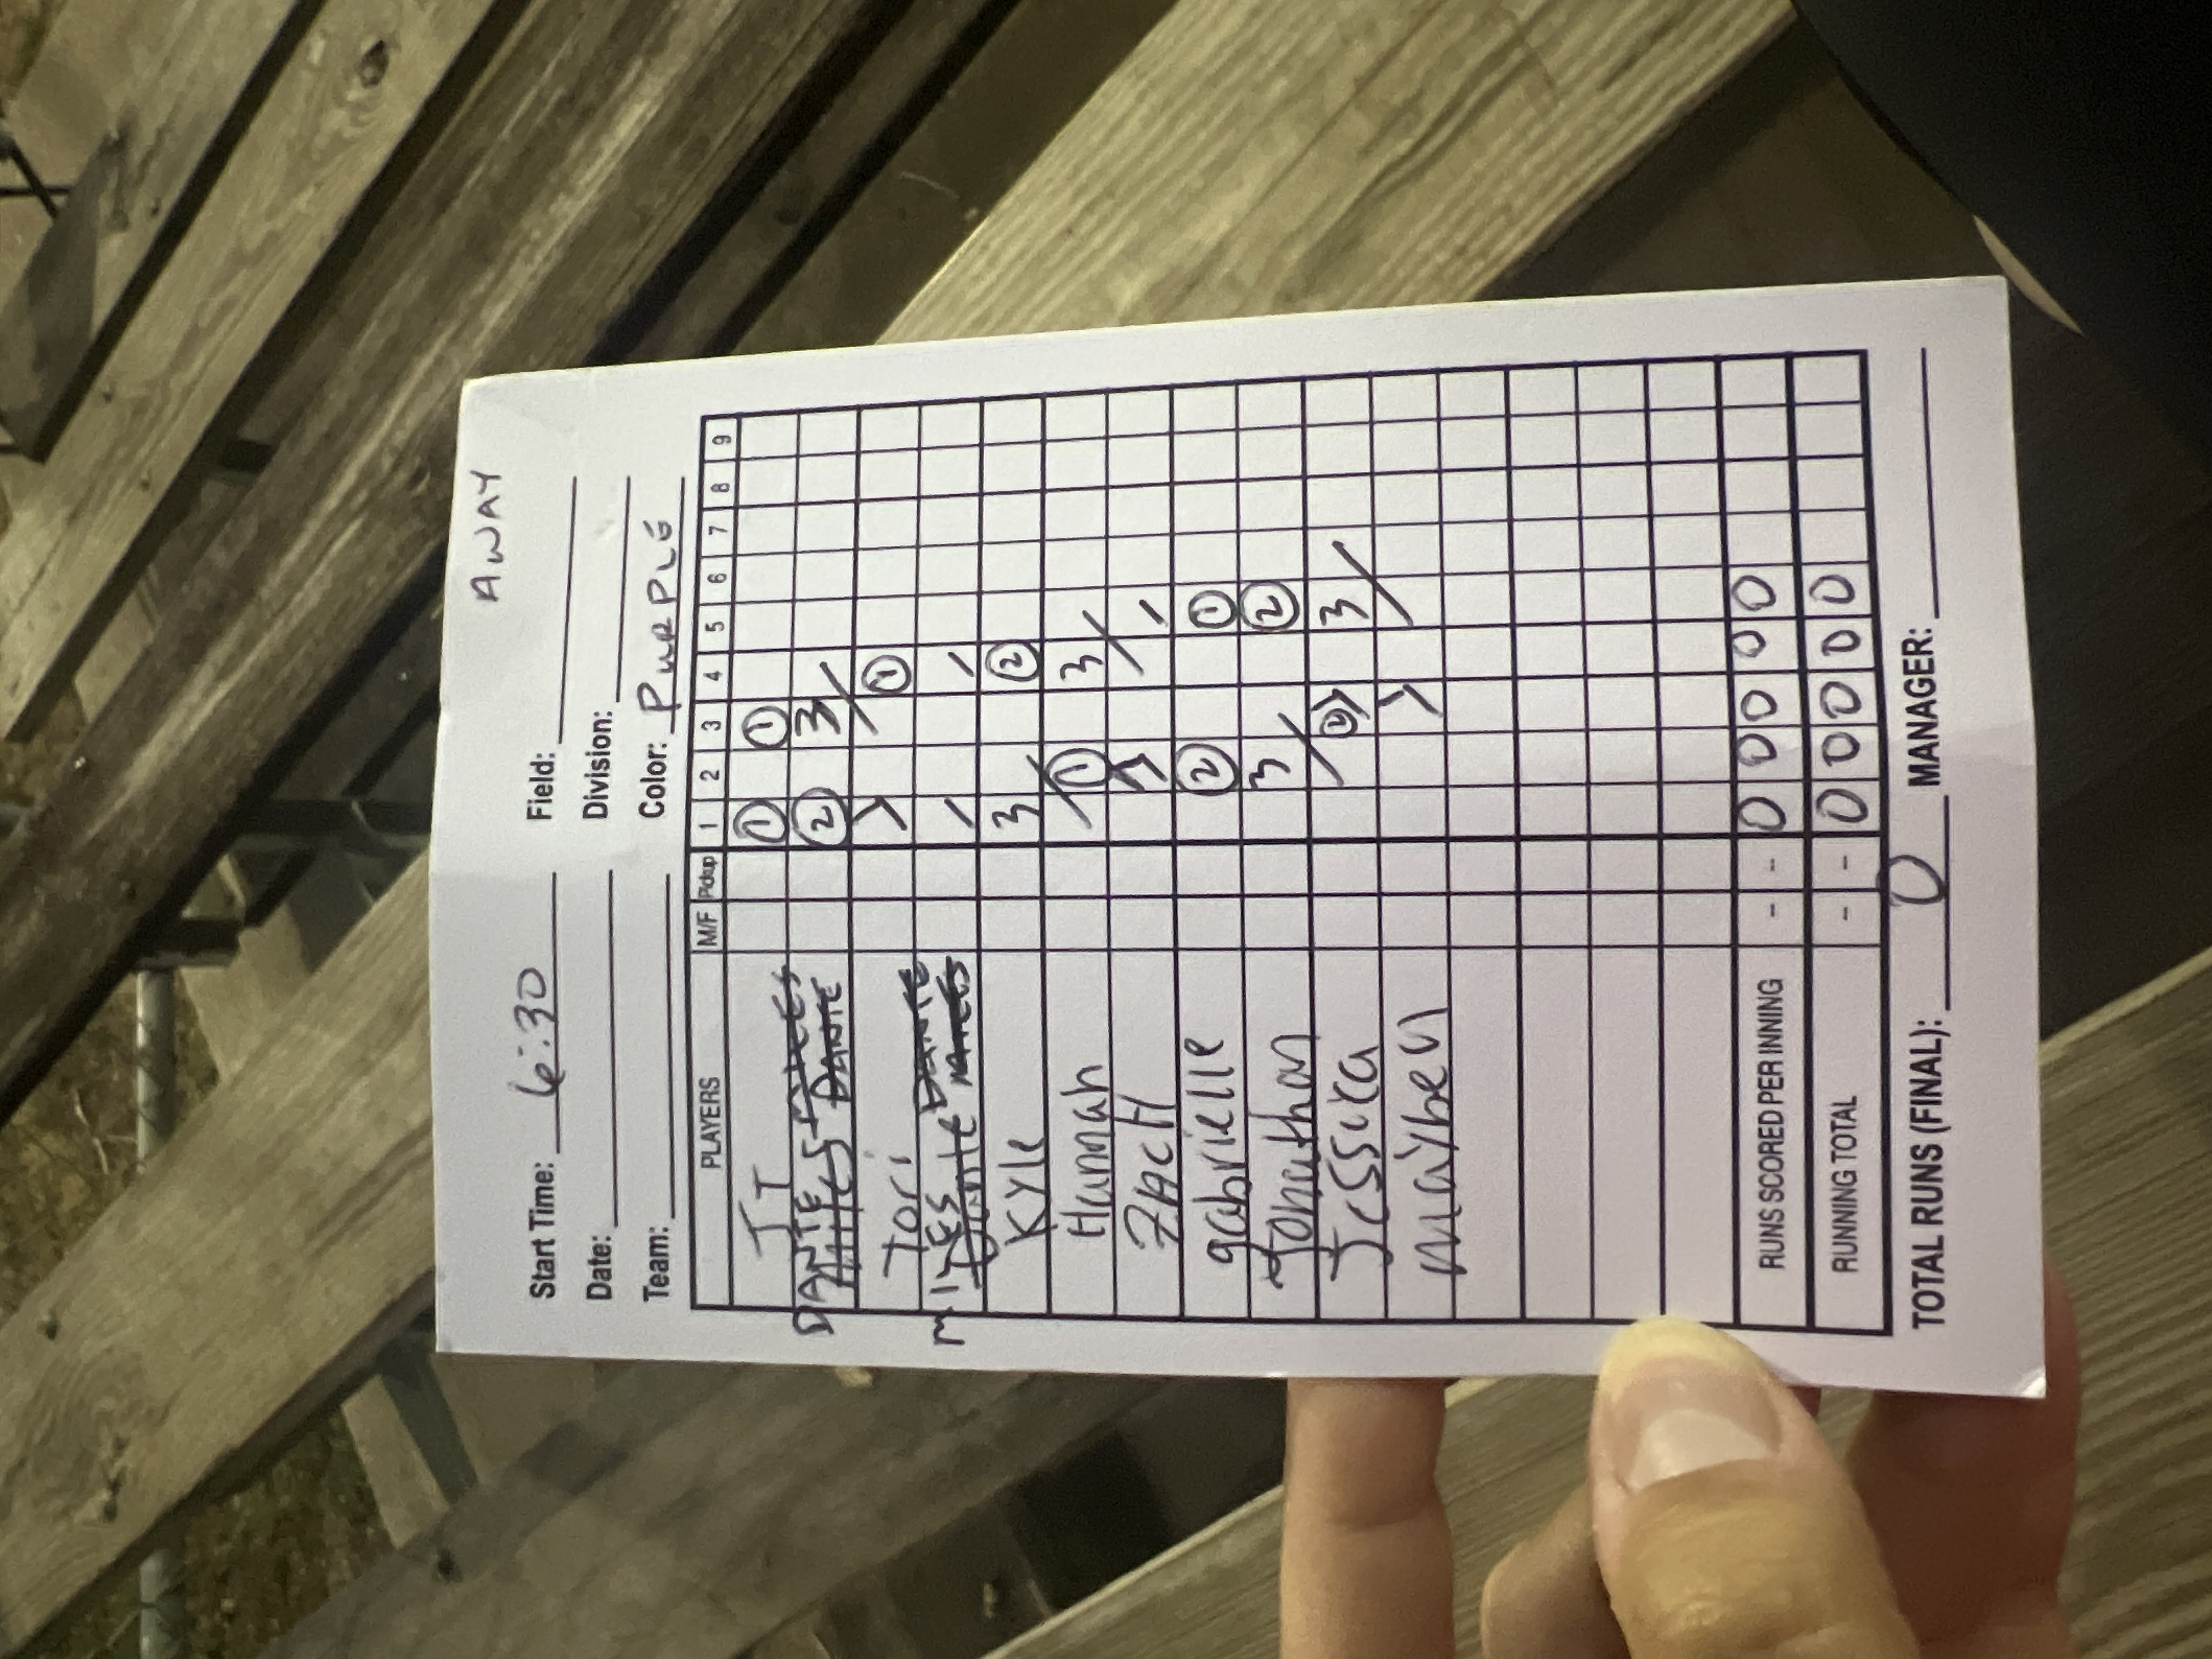 AWAY
Start Time: 6:30 Field:
Date: Division:
Team: Color: PURPLE
PLAYERS M/F Pickup 1 2 3 4 5 6 7 8 9
JT 1 1
DANTE DANTE 2 3
Tori 1
MILES Dante DANTE
Kyle 3 2
Hannah 1 3
ZACH
gabrielle 2 1
Jonathan 3 2
Jessica 2 3
mayben
RUNS SCORED PER INNING - - 0 0 0 0 0
RUNNING TOTAL - - 0 0 0 0 0
TOTAL RUNS (FINAL): 0 MANAGER: